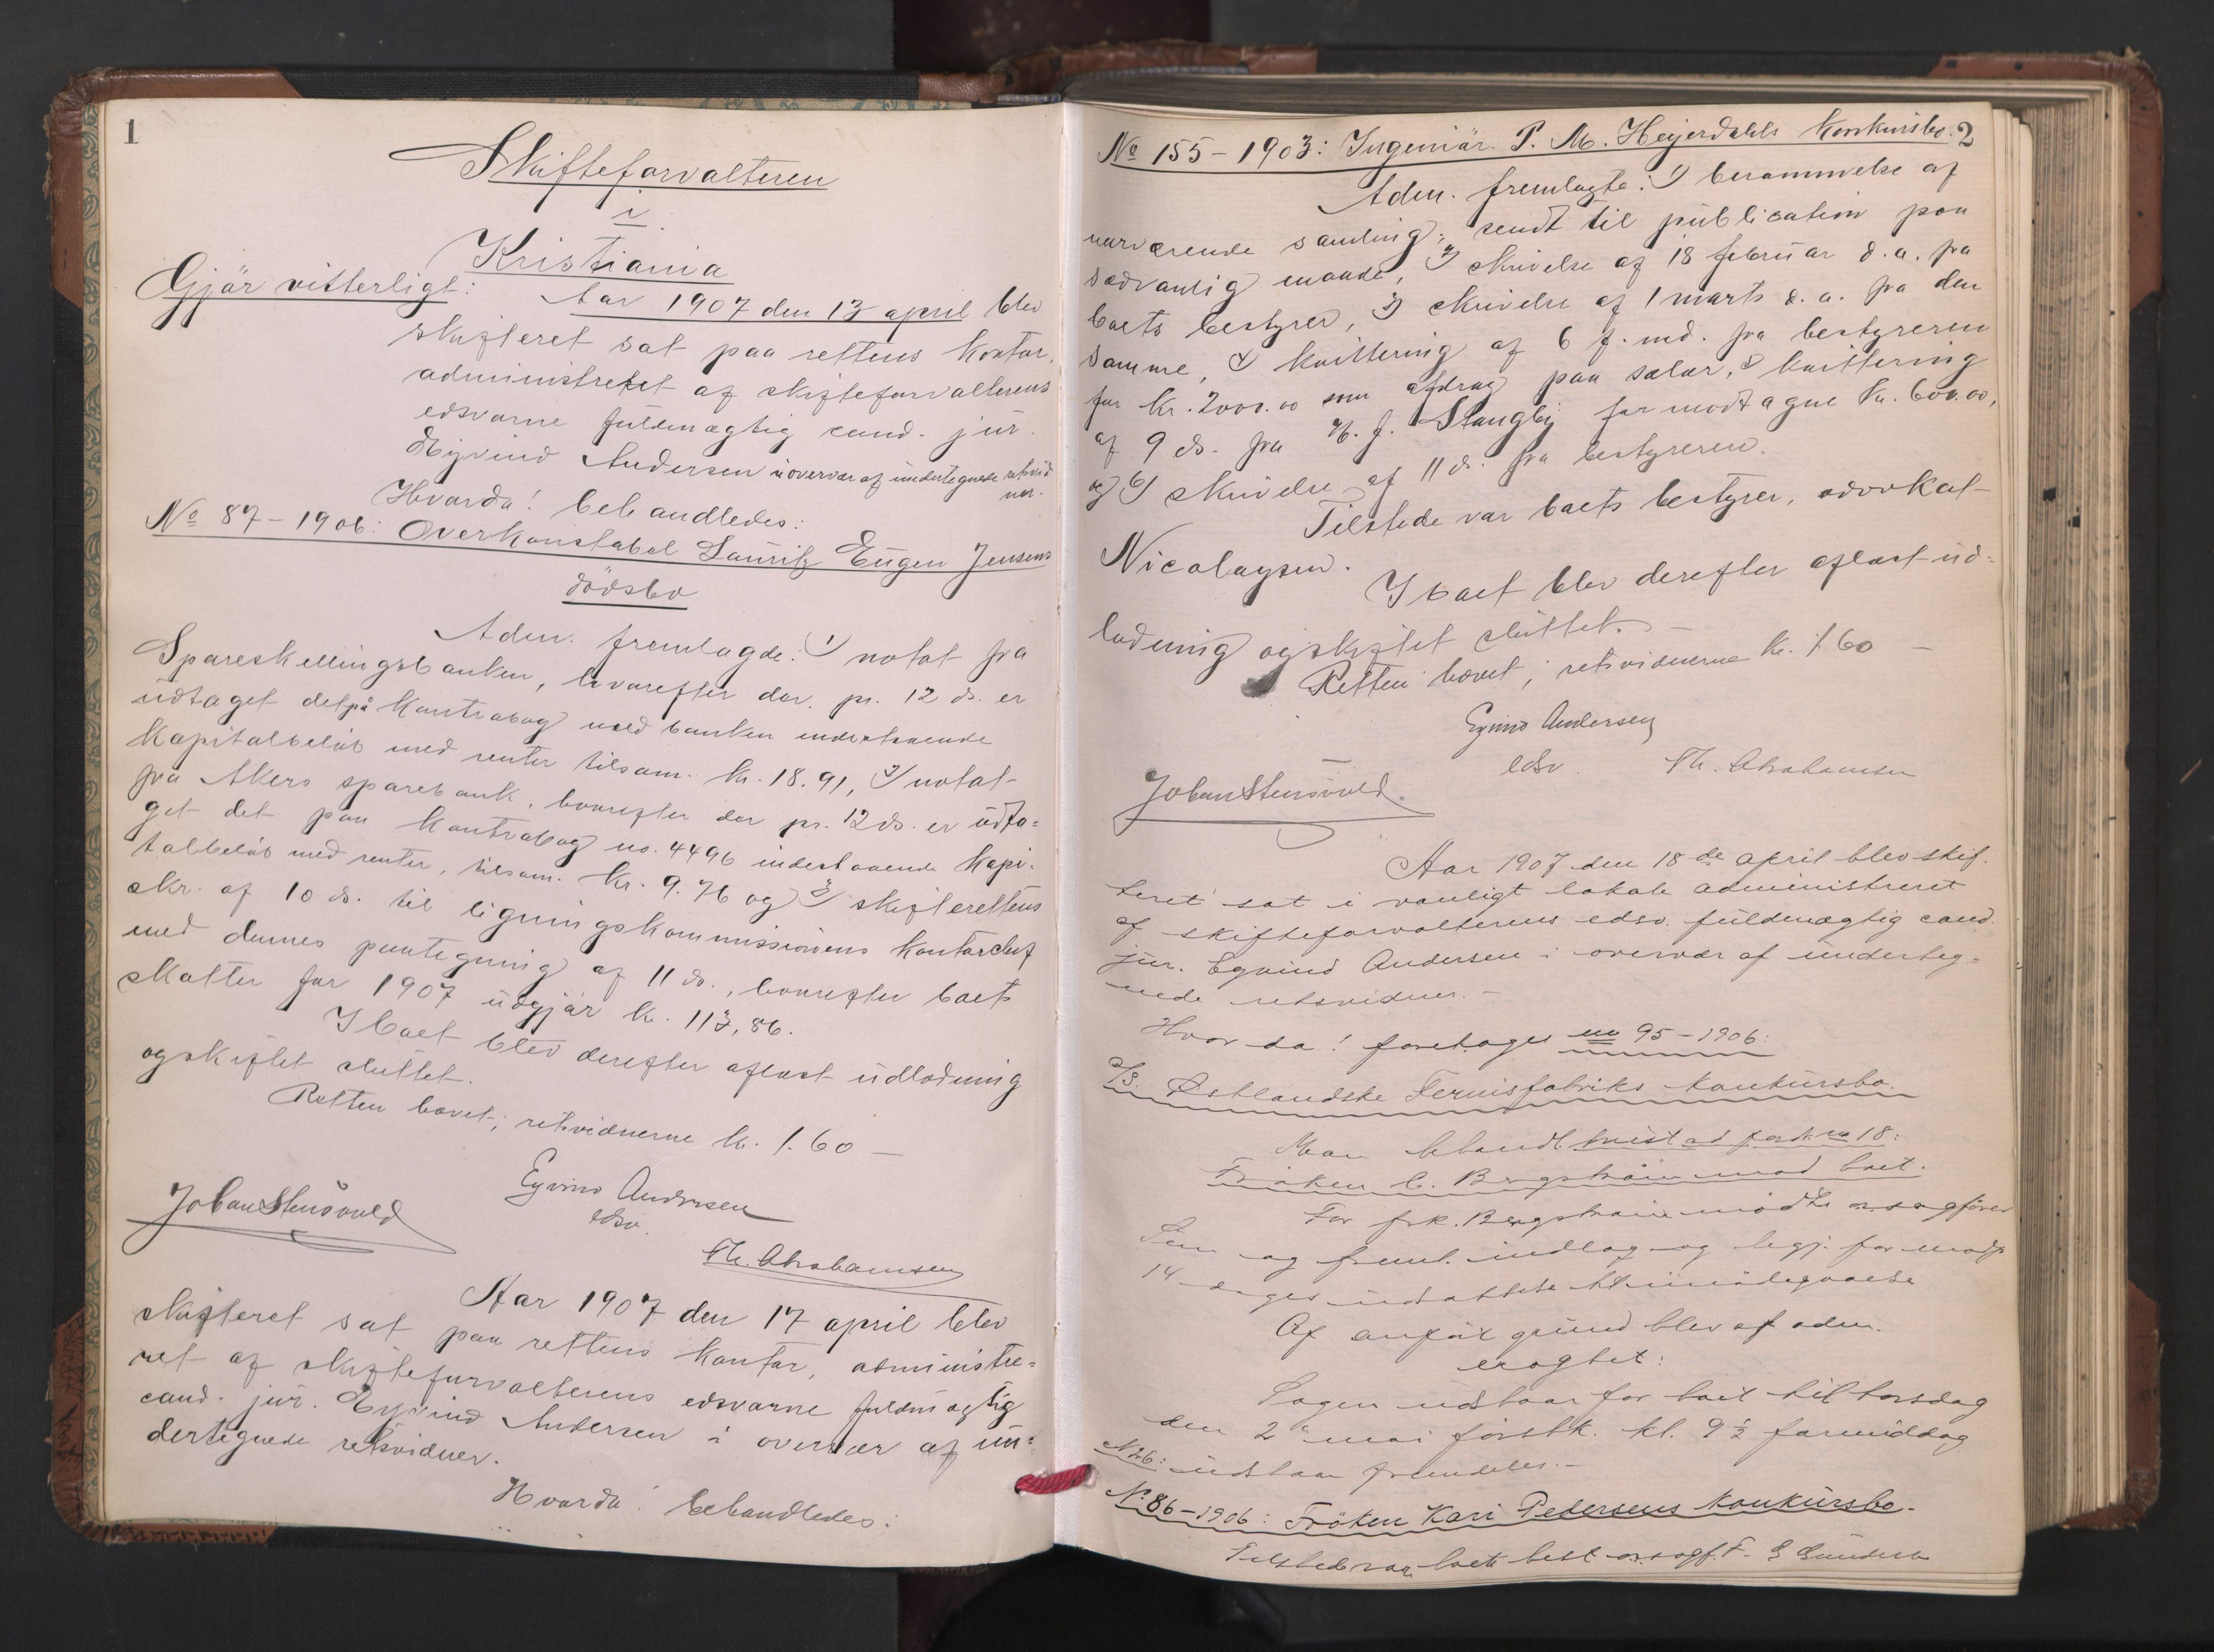 1
Skifteforvalteren
i
Kristiania
Gjør vitterligt: Aar 1907 den 13 april blev
skifteret sat paa rettens kontor,
administreret af skifteforvalterens
edsvorne fuldmægtig cand. jur.
Eyvind Andersen i overvær af undertegnede retsvid
ner.
Hvorda! behandledes:
No 87-1906: Overkonstabel Lauritz Eugen Jensens
dødsbo
Adm. fremlagde: 1) notat fra
Spareskillingsbanken, hvorefter der pr. 12 ds. er
udtaget det på kontrabog med banken indestaaende
kapitalbeløb med renter tilsam. kr. 18.91, 2) notat
fra Akers sparebank, hvorefter der pr. 12 ds. er udta=
get det paa kontrabog no. 4496 indestaaende kapi-
talbeløb med renter, tilsam. kr. 9.76 og 3) skifterettens
skr. af 10 ds. til ligningskommissionens kontorchef
med dennes paategning af 11 ds., hvorefter boets
skatter for 1907 udgjør kr. 113,86.
I boet blev derefter aflæst udlodning
og skiftet sluttet.
Retten hævet; retsvidnerne kr. 1.60 —
Eyvind Andersen
edsv.
Johan Stensvold
Th. Abrahamsen
Aar 1907 den 17 april blev
skifteret sat paa rettens kontor, administre=
ret af skifteforvalterens edsvorne fuldmægtig
cand. jur. Eyvind Andersen i overvær af un=
dertegnede retsvidner.
Hvorda! behandledes:
No 155-1903: Ingeniør P. M. Heyerdahls konkursbo. 2
Adm. fremlagte: 1) berammelse af
nærværende samling; sendt til publication paa
sædvanlig maade, 2) skrivelse af 18 februar d.a. fra
boets bestyrer, 3) skrivelse af 1 marts d.a. fra den
samme, 4) kvittering af 6 f.md. fra bestyreren
for kr. 2000.00 som afdrag paa salær, 5) kvittering
af 9 ds. fra H. J. Stangby for modtagne kr. 600.00,
og 6) skrivelse af 11 ds. fra bestyreren.
Tilstede var boets bestyrer, advokat
Nicolaysen.
I boet blev derefter aflæst ud=
lodning og skiftet sluttet. —
Retten hævet; retsvidnerne kr. 1.60 —
Eyvind Andersen
edsv. Th. Abrahamsen
Johan Stensvold
Aar 1907 den 18de april blev skif-
teret sat i vanligt lokale administreret
af skifteforvalterens edsv. fuldmægtig cand.
jur. Eyvind Andersen i overvær af underteg=
nede retsvidner. —
Hvor da! foretoges no 95-1906:
A/S. Østlandske Fernisfabriks konkursbo.
Man behandl. tvist ad ford. no 18:
Frøken C. Bergstrøm mod boet.
For frk. Bergstrøm mødte o.r.sagfører
og freml. indlæg og begj. for modp.
14 dages udsættelse til imødegaaelse
Af anført grund blev af adm.
eragtet:
Sagen udstaar for boet til torsdag
den 2 mai førstk. kl. 9 1/2 formiddag
udstaar fremdeles. —
No 86-1906: Frøken Kari Pedersens konkursbo.
Tilstede var boets best. o.r.sagf. F.